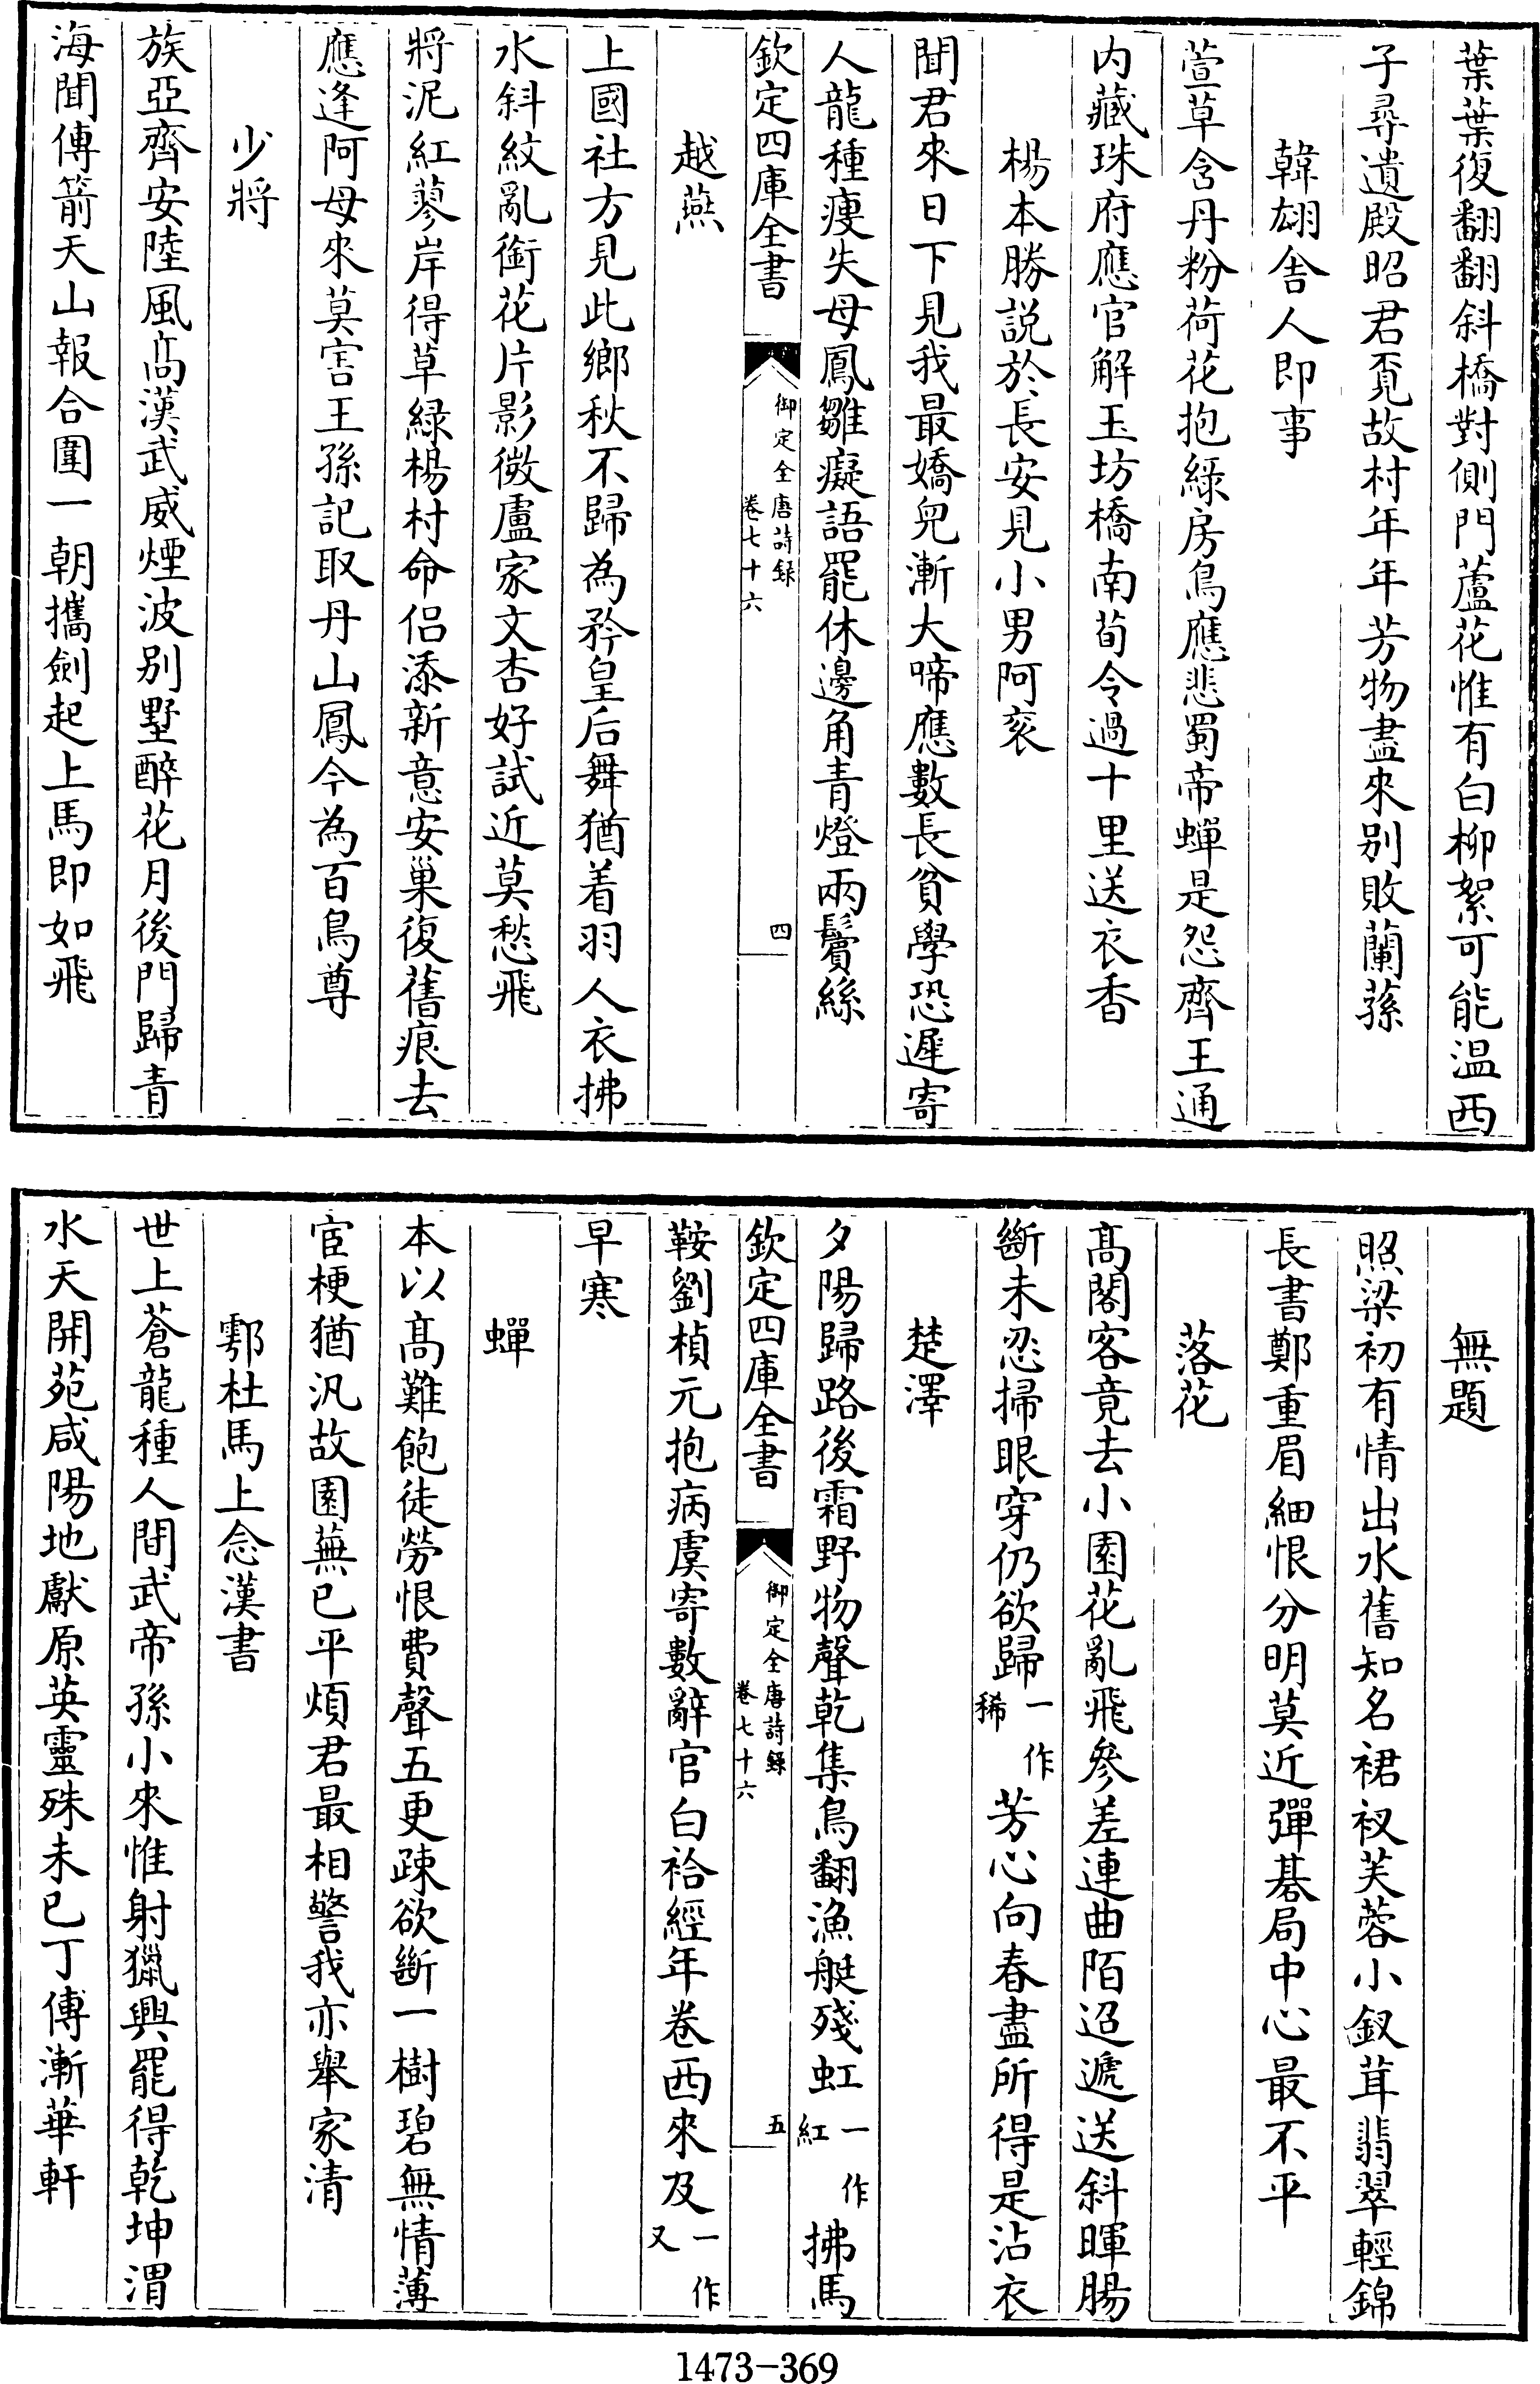 葉葉復翻翻斜橋對側門蘆花惟有白柳絮可能温西
子尋遺殿昭君覔故村年年芳物盡來别敗蘭蓀
韓翃舎人即事
萱草含丹粉荷花抱緑房鳥應悲蜀帝蟬是怨齊王通
内藏珠府應官解玉坊橋南荀令過十里送衣香
楊本勝説於長安見小男阿衮
聞君來日下見我最嬌兒漸大啼應數長貧學恐遲寄
人龍種瘦失母鳳雛癡語罷休邊角青燈兩鬢絲
欽定四庫全書
御定全唐詩録
卷七十六
四
越燕
上國社方見此鄉秋不歸為矜皇后舞猶着羽人衣拂
水斜紋亂銜花片影微盧家文杏好試近莫愁飛
將泥紅蓼岸得草緑楊村命侣添新意安巢復舊痕去
應逢阿母來莫害王孫記取丹山鳳今為百鳥尊
少將
族亞齊安陸風高漢武威煙波别墅醉花月後門歸青
海聞傳箭天山報合圍一朝攜劍起上馬即如飛
無題
照梁初有情出水舊知名裙衩芙蓉小釵茸翡翠輕錦
長書鄭重眉細恨分明莫近彈碁局中心最不平
落花
高閣客竟去小園花亂飛參差連曲陌迢遞送斜暉腸
斷未忍掃眼穿仍欲歸一作稀芳心向春盡所得是沾衣
楚澤
夕陽歸路後霜野物聲乾集鳥翻漁艇殘虹一作紅拂馬
欽定四庫全書
御定全唐詩録
卷七十六
五
鞍劉楨元抱病虞寄數辭官白袷經年卷西來及一作又
早寒
蟬
本以高難飽徒勞恨費聲五更疎欲斷一樹碧無情薄
宦梗猶汎故園蕪已平煩君最相警我亦舉家清
鄠杜馬上念漢書
世上蒼龍種人間武帝孫小來惟射獵興罷得乾坤渭
水天開苑咸陽地獻原英靈殊未已丁傅漸華軒
1473-369